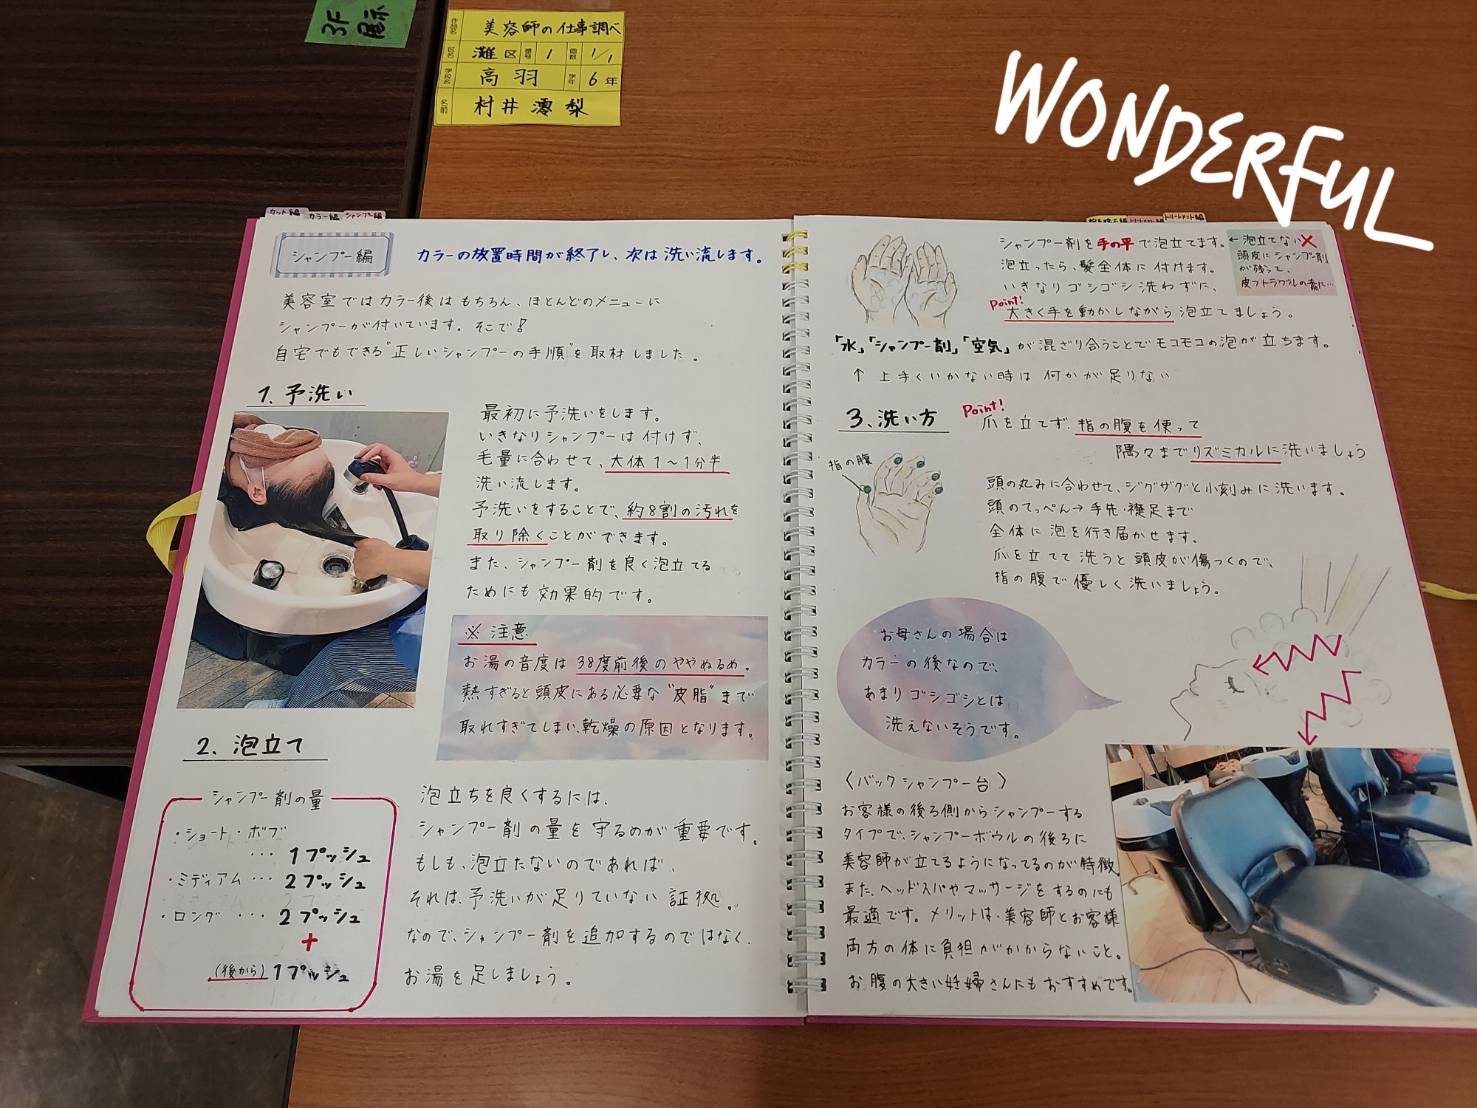 3F
展示
作品名 美容師の仕事調べ
灘区 1 1/1
高羽 6年
村井澪梨
WONDERFUL
カット編 カラー編 シャンプー編
トリートメント編
シャンプー編
カラーの放置時間が終了し、次は洗い流します。
美容室ではカラー後はもちろん、ほとんどのメニューに
シャンプーが付いています。そこで!
自宅でもできる"正しいシャンプーの手順"を取材しました。
1. 予洗い
最初に予洗いをします。
いきなりシャンプーは付けず、
毛量に合わせて、大体1~1分半
洗い流します。
予洗いをすることで、約8割の汚れを
取り除くことができます。
また、シャンプー剤を良く泡立てる
ためにも効果的です。
※ 注意
お湯の音度は38度前後のややぬるめ。
熱すぎると頭皮にある必要な"皮脂"まで
取れすぎてしまい、乾燥の原因となります。
2. 泡立て
シャンプー剤の量
・ショート・ボブ
・・・1プッシュ
・ミディアム・・・2プッシュ
・ロング ・・・2プッシュ
+
(後から)1プッシュ
泡立ちを良くするには、
シャンプー剤の量を守るのが重要です。
もしも、泡立たないのであれば、
それは、予洗いが足りていない証拠。
なので、シャンプー剤を追加するのではなく、
お湯を足しましょう。
シャンプー剤を手の平で泡立てます。
泡立ったら、髪全体に付けます。
いきなりゴシゴシ洗わずに、
Point!
大きく手を動かしながら泡立てましょう。
←泡立てない✕
頭皮にシャンプー剤
が残って、
皮フトラブルの素に…
「水」「シャンプー剤」「空気」が混ざり合うことでモコモコの泡が立ちます。
↑上手くいかない時は何かが足りない
3、洗い方
Point!
爪を立てず、指の腹を使って
隅々までリズミカルに洗いましょう
指の腹
頭の丸みに合わせて、ジグザグと小刻みに洗います。
頭のてっぺん→手先・襟足まで
全体に泡を行き届かせます。
爪を立てて洗うと頭皮が傷つくので、
指の腹で優しく洗いましょう。
お母さんの場合は
カラーの後なので、
あまりゴシゴシとは
洗えないそうです。
〈バックシャンプー台〉
お客様の後ろ側からシャンプーする
タイプで、シャンプーボウルの後ろに
美容師が立てるようになってるのが特徴
また、ヘッドスパやマッサージをするのにも
最適です。メリットは、美容師とお客様
両方の体に負担がかからないこと。
お腹の大きい妊婦さんにもおすすめです。